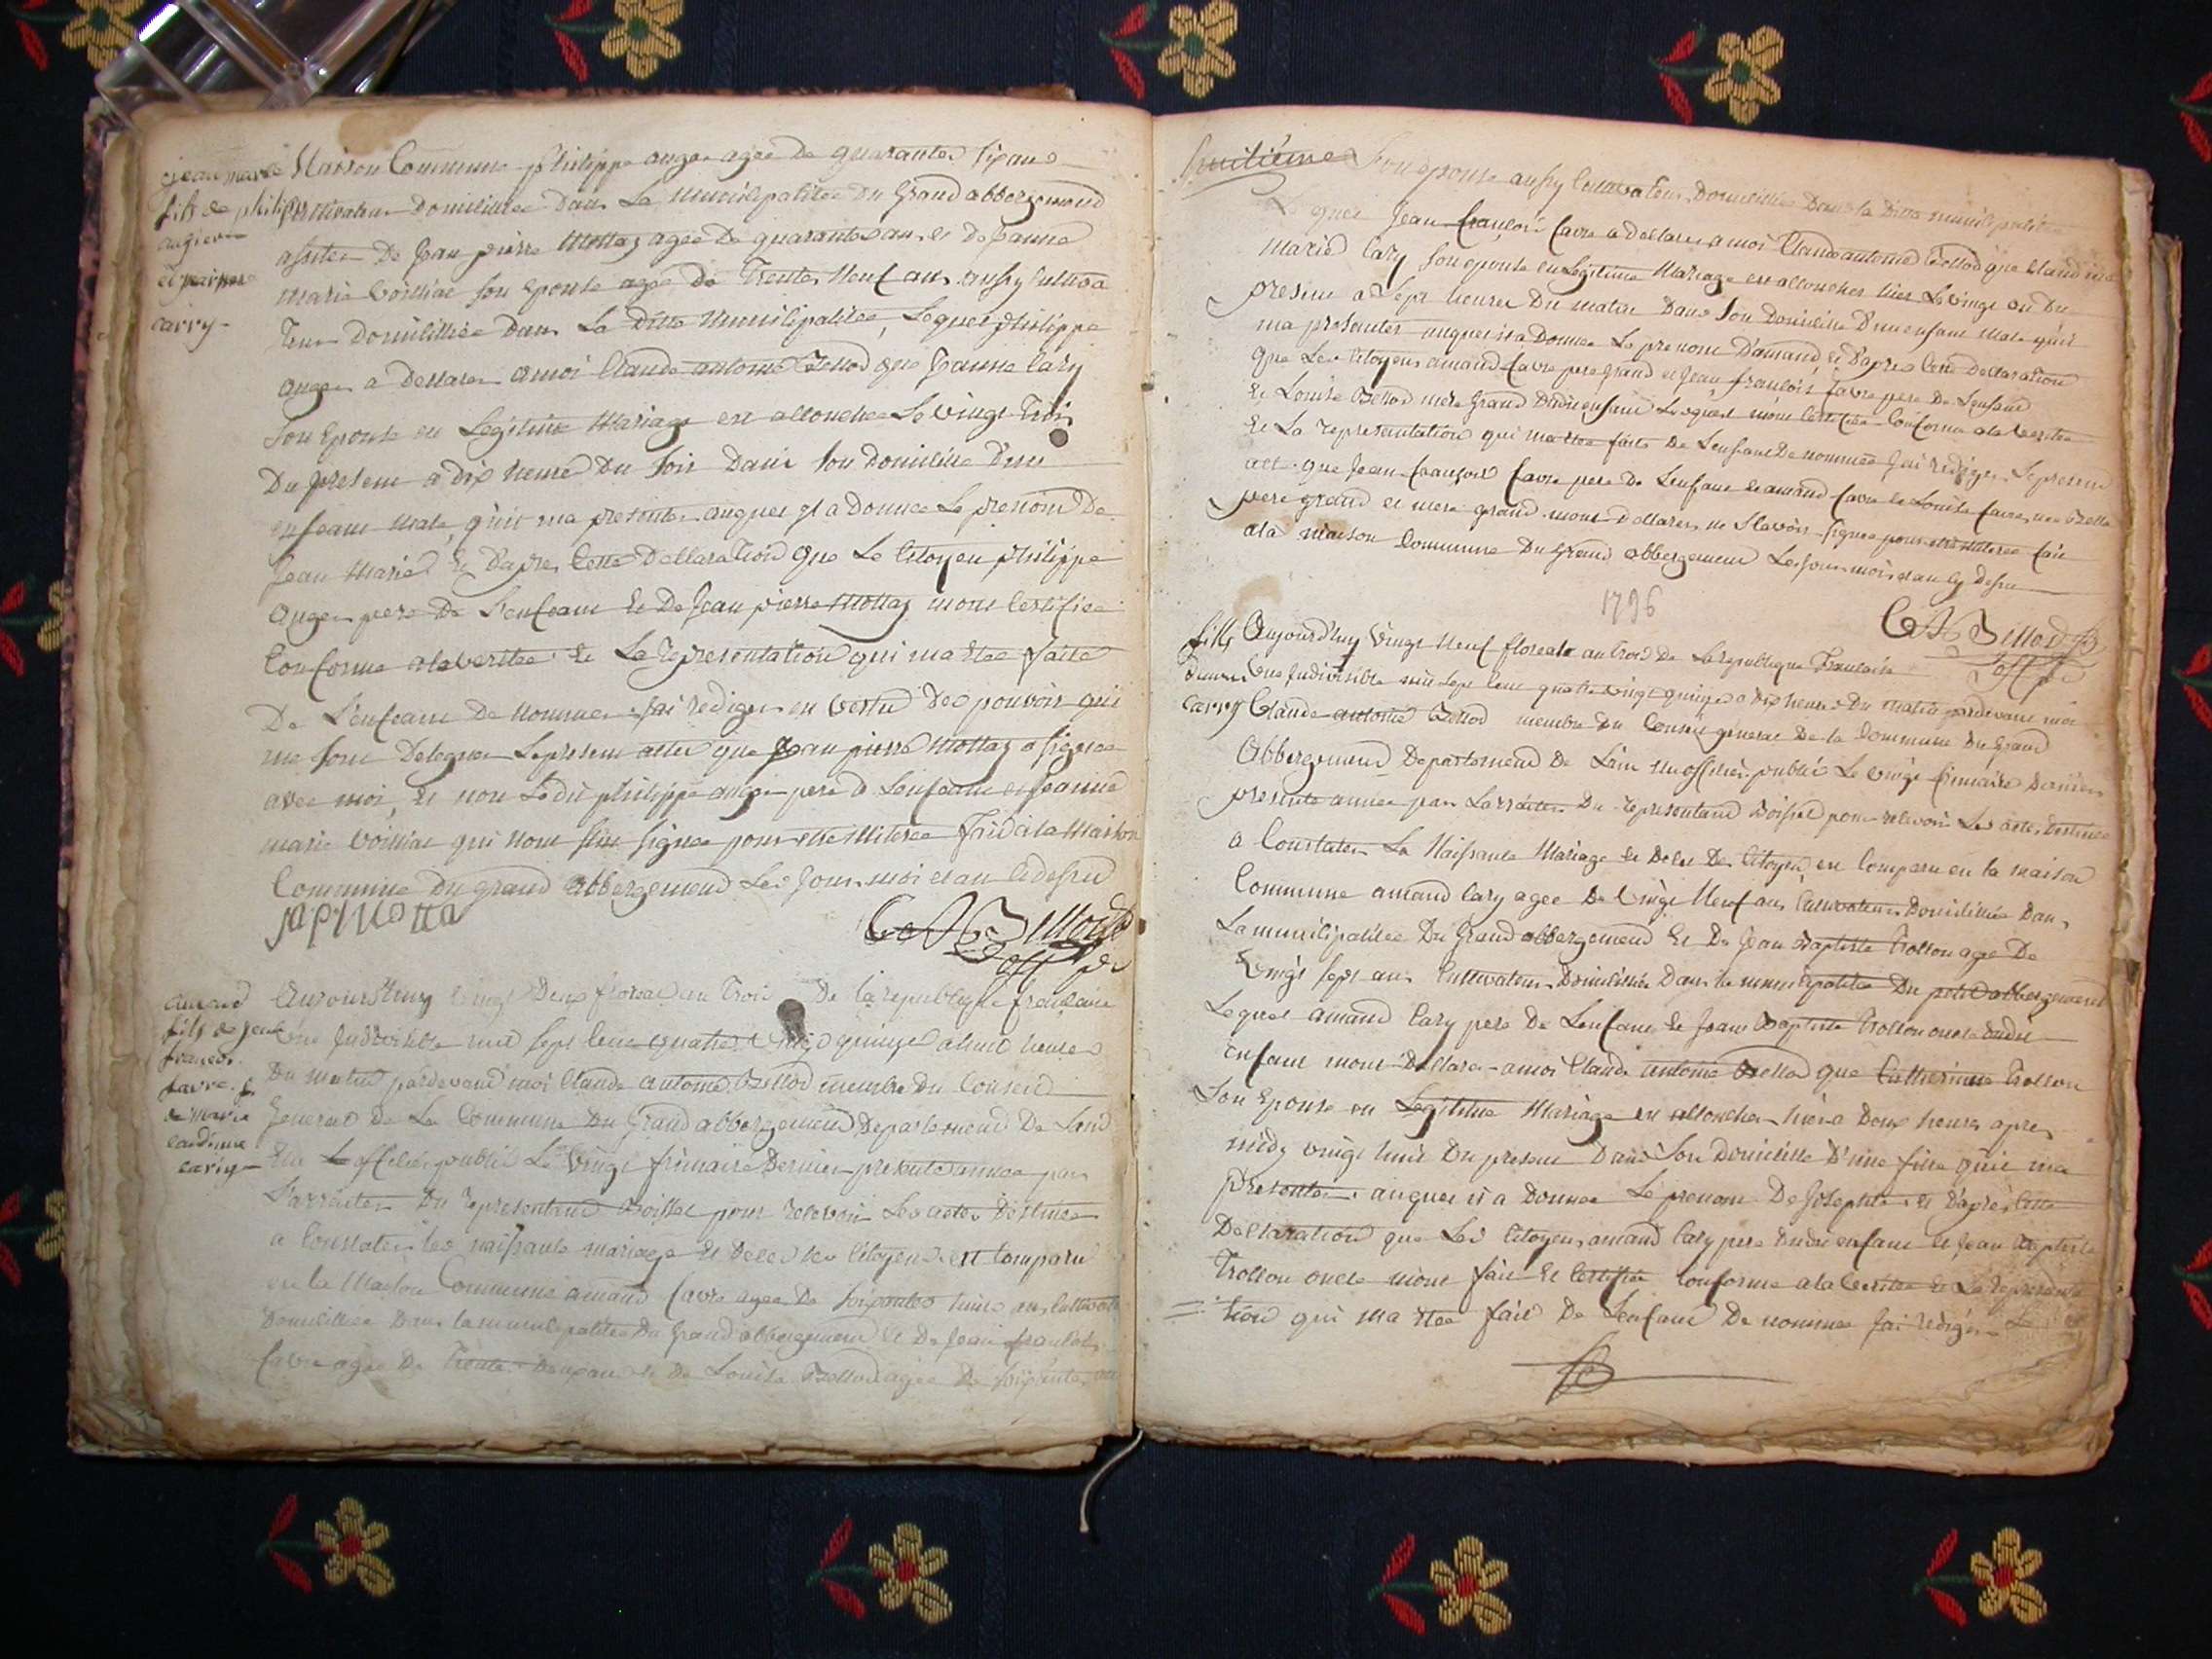 jean marie
fils de philippe
augier
et jeanne
carry
Maison Commune philippe auger agée de quarante six ans
Cultivateur Domicilliée Dans La municipalitée Du Grand abbergement
assister De Jean pierre Mottaz agée De quarante ans et De Jeanne
marie son Epouse agée De Trente Neuf ans aussy Cultiva
teur Domicilliée Dans La Ditte Municipalitée, Lequel philippe
auger a Declarer amoi Claude antoine Billod que Jeanne Cary
son Epouse en Legitime Mariage est accouchee Le vingt Trois
Du present a Dix heure Du soir Dans son Domicille D'un
enfant male, qu'il ma presenter auquel il a Donnee Le prenom De
Jean Marie et D'apres Cette Declaration que Le Citoyen philippe
auger pere De L'enfant et De Jean pierre Mottaz mont Certifiee
Conforme alaveritee et La representation qui ma etee faitte
De L'enfant De nommer jai rediger en vertu Des pouvoir qui
me sont Deleguer Lepresent acte que Jean pierre Mottaz a signee
avec moi, et non Ledit philippe auger pere a Lenfant et Jeanne
marie qui nont sut signee pour etre Fait a la Maison
Commune Du grand abbergement Les Jour moi et an Cedessu
JapMotta
C A Billod
off p
amand
fils de jean
francois
favre et
de marie
claudine
cary
Aujourdhuy vingt Deux floreal an Trois De la republique francaise
une Indivisible mil sept Cent quatre vingt quinze a huit heures
Du matin pardevant moi Claude antoine Billod membre Du Conseil
General De La Commune Du Grand abbergement Departement De Lain
Elu officier public Le vingt frimaire Dernier presente annee par
L'arreter Du representant Boisset pour recevoir Les actes Destinee
a Constater Les naissance mariage et Deces des Citoyens est Comparu
en la Maison Commune amand favre agee De soixantes huit ans Cultivateur
Domicilliee Dans la municipalitee Du Grand abbergement et De Jean francois
favre agee De Trente Deux ans et De Louise Billod agee De soixante ans
huitieme
Son epouse aussy Cultivateur Domicilliee Dans la Ditte municipalitee
Lequel Jean francois favre a Declarer a moi Claude antoine Billod que Claudine
marie Cary son epouse en Legitime Mariage est accoucher hier Le vingt un Du
present a Sept heures Du matin Dans son Domicille D'un enfant male qu'il
ma presenter auquel il a Donnee Le prenom D'amand, et D'apres Cette Declaration
que Les Citoyens amand favre pere grand et Jean francois favre pere De Lenfant
et Louise Billod mere Grand Dudit enfant Lesquel mont Certifiee Conforme ala veritee
et La representation qui ma etee faite De Lenfant De nommee Jai rediger Le present
acte que Jean francois favre pere De Lenfant et amand favre et Louise favre nee Billo
pere grand et mere grand mont Declarer ne Scavoir signee pour etre fait
ala maison Commune Du Grand abbergement Les Jour moi et an cy Dessu
1796
C A Billod
off p
fille
carry
Aujourd'huy Vingt Neuf floreale an trois De La republique Francaise
une Indivisible mil Sept Cent quatre vingt quinze a Dix heure Du matin pardevant moi
Claude antoine Billod membre Du Conseil general De la Commune Du Grand
Abbergement Departement De Lain officier public Le vingt frimaire Dernier
presente annee par Larreter Du representant Boisset pour recevoir Les actes Destinee
a Constater La Naissance Mariage et Deces Des Citoyen, est Comparu en la maison
Commune amand Cary agee De Vingt Neuf ans Cultivateur Domicilliee Dans
La municipalitee Du Grand abbergement et De Jean Baptiste Trollou agee De
Vingt sept ans Cultivateur Domicilliee Dans la municipalitee Du petit abbergement
Lequel amand Cary pere De Lenfant et Jean Baptiste Trollou oncle Dudit
enfant mont Declarer amoi Claude antoine Billod que Catherine Trollou
Son Epouse en Legitime Mariage est accoucher hier a Deux heures apres
midy vingt huit Du present Dans Son Domicille D'une fille qu'il ma
presenter auquel il a Donnee Le prenom De Josephte et D'apres Cette
Declaration que Les Citoyens amand Cary pere Dudit enfant et Jean Baptiste
Trollou oncle mont fait et Certifiee Conforme a la Veritee et La representa
tion qui ma etee fait De Lenfant De nommee Jai rediger Le